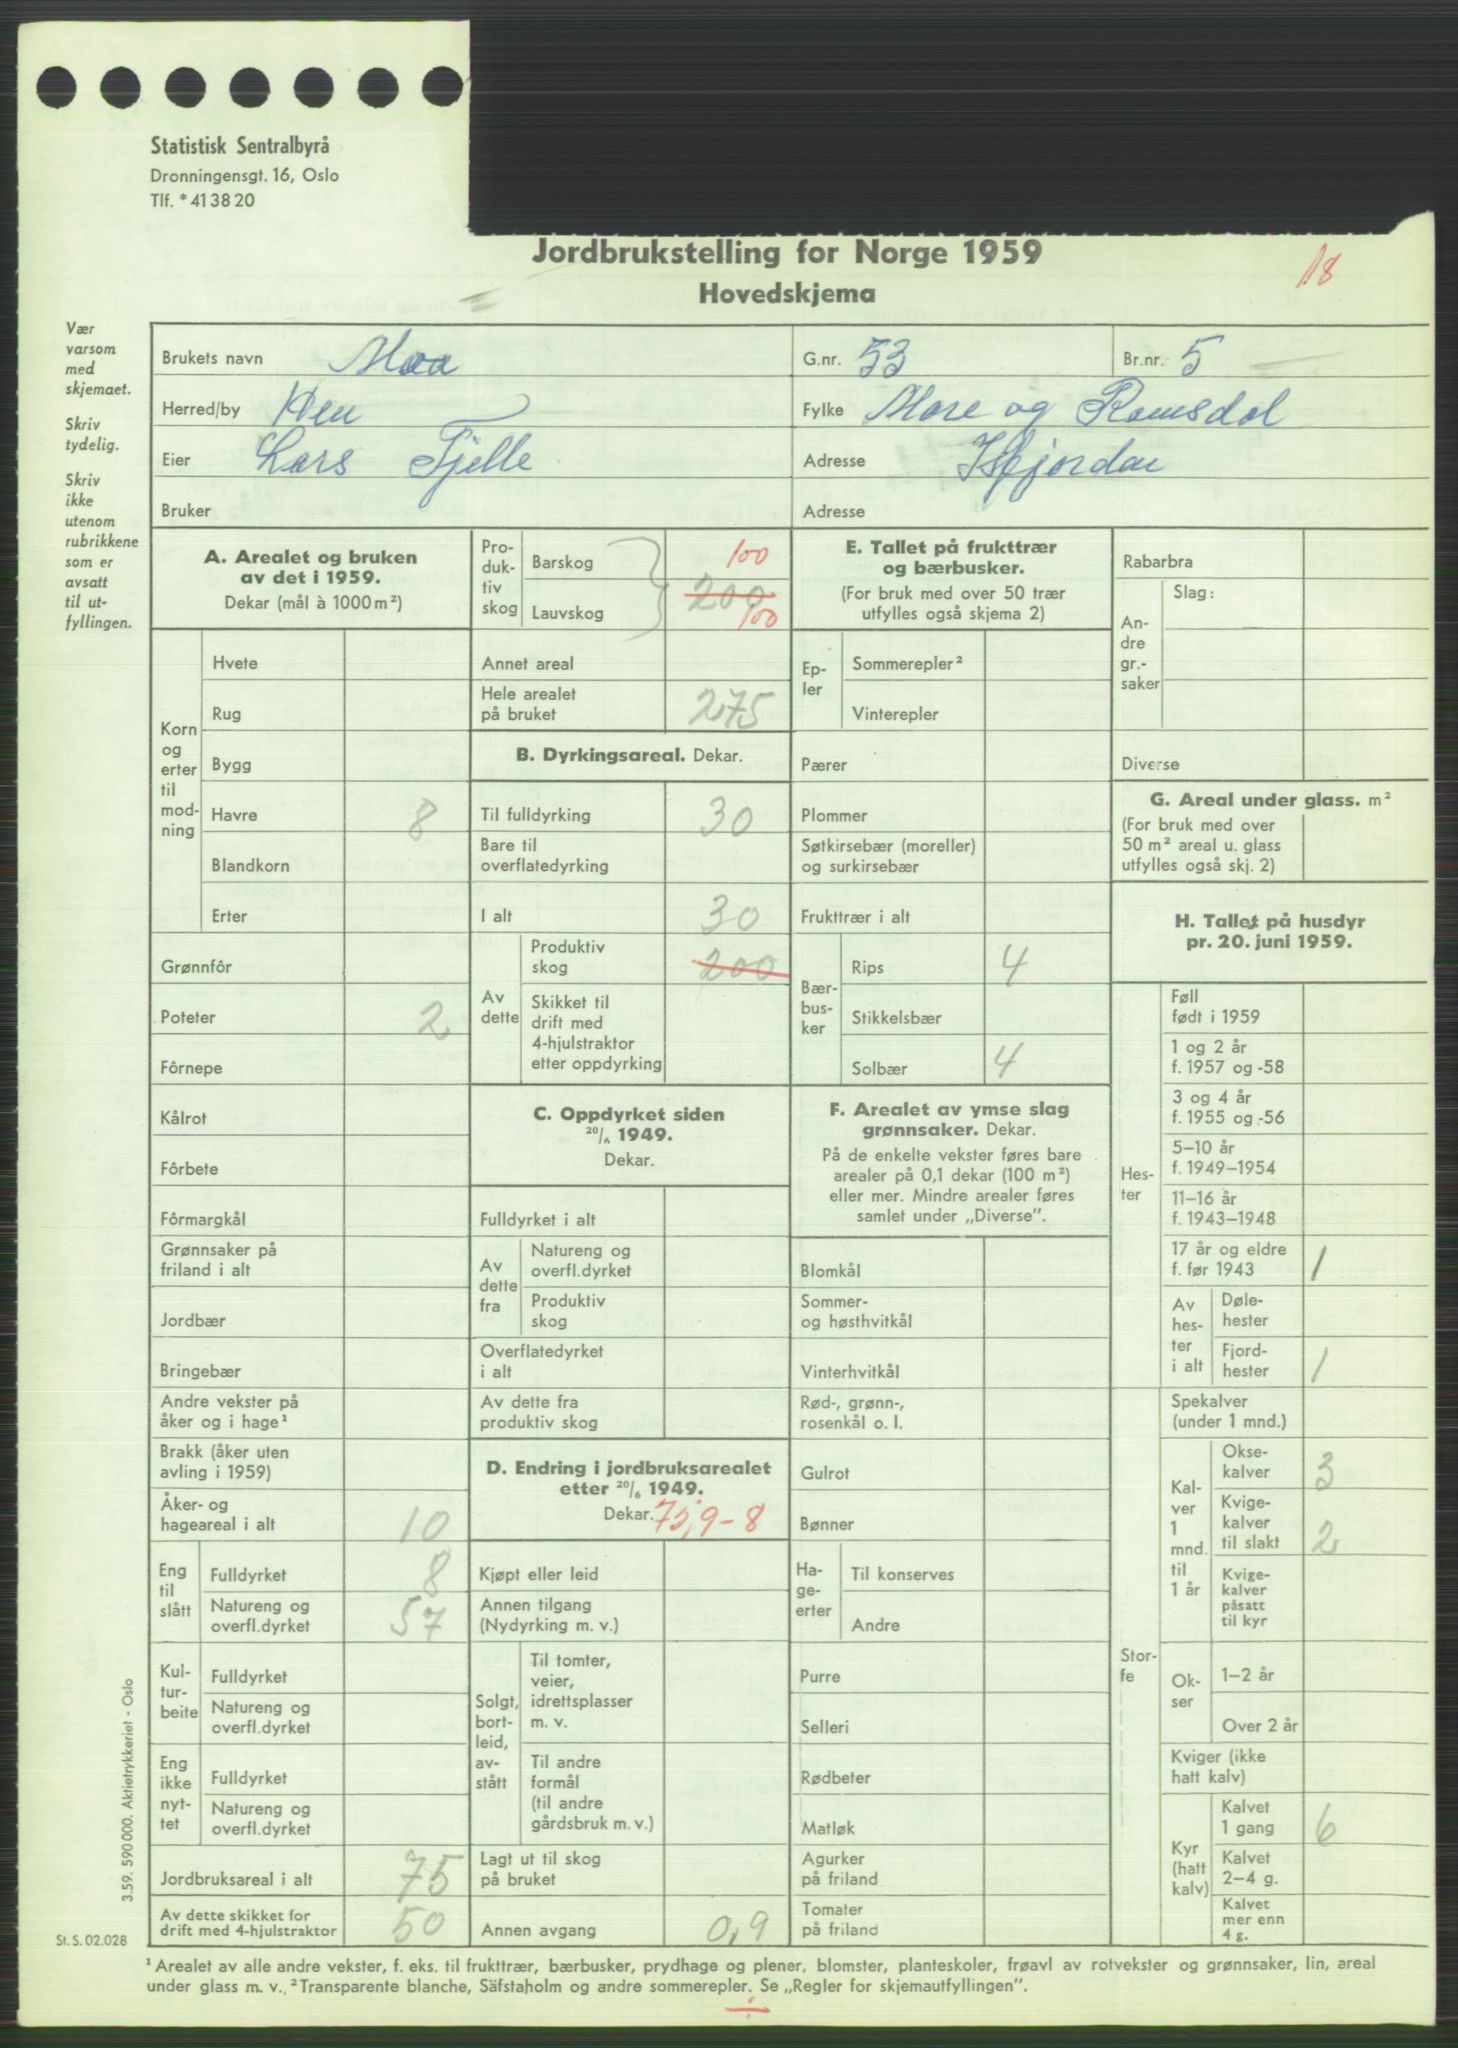 Statistisk Sentralbyrå
Dronningensgt. 16, Oslo
Tlf. * 41 38 20
Jordbrukstelling for Norge 1959
Hovedskjema
18
Vær
varsom
med
skjemaet.
Skriv
tydelig.
Skriv
ikke
utenom
rubrikkene
som er
avsatt
til ut-
fyllingen.
Brukets navn Moa G.nr. 53 Br.nr. 5
Herred/by Hen Fylke Møre og Romsdal
Eier Lars Fjelle Adresse Isfjorden
Bruker Adresse
A. Arealet og bruken
av det i 1959.
Dekar (mål à 1000 m²)
Korn
og
erter
til
mod-
ning
Hvete
Rug
Bygg
Havre 8
Blandkorn
Erter
Grønnfôr
Poteter 2
Fôrnepe
Kålrot
Fôrbete
Fôrmargkål
Grønnsaker på
friland i alt
Jordbær
Bringebær
Andre vekster på
åker og i hage¹
Brakk (åker uten
avling i 1959)
Åker- og
hageareal i alt 10
Eng
til
slått
Fulldyrket 8
Natureng og
overfl.dyrket 57
Kul-
tur-
beite
Fulldyrket
Natureng og
overfl.dyrket
Eng
ikke
nyt-
tet
Fulldyrket
Natureng og
overfl.dyrket
Jordbruksareal i alt 75
Av dette skikket for
drift med 4-hjulstraktor 50
Pro-
duk-
tiv
skog
Barskog 100
200
Lauvskog 100
Annet areal
Hele arealet
på bruket 275
B. Dyrkingsareal. Dekar.
Til fulldyrking 30
Bare til
overflatedyrking
I alt 30
Av
dette
Produktiv
skog 200
Skikket til
drift med
4-hjulstraktor
etter oppdyrking
C. Oppdyrket siden
20/6 1949.
Dekar.
Fulldyrket i alt
Av
dette
fra
Natureng og
overfl.dyrket
Produktiv
skog
Overflatedyrket
i alt
Av dette fra
produktiv skog
D. Endring i jordbruksarealet
etter 20/6 1949.
Dekar. 75,9-8
Kjøpt eller leid
Annen tilgang
(Nydyrking m. v.)
Solgt,
bort-
leid,
av-
stått
Til tomter,
veier,
idrettsplasser
m. v.
Til andre
formål
(til andre
gårdsbruk m. v.)
Lagt ut til skog
på bruket
Annen avgang 0,9
E. Tallet på frukttrær
og bærbusker.
(For bruk med over 50 trær
utfylles også skjema 2)
Ep-
ler
Sommerepler²
Vinterepler
Pærer
Plommer
Søtkirsebær (moreller)
og surkirsebær
Frukttrær i alt
Bær-
bus-
ker
Rips 4
Stikkelsbær
Solbær 4
F. Arealet av ymse slag
grønnsaker. Dekar.
På de enkelte vekster føres bare
arealer på 0,1 dekar (100 m²)
eller mer. Mindre arealer føres
samlet under „Diverse”.
Blomkål
Sommer-
og høsthvitkål
Vinterhvitkål
Rød-, grønn-,
rosenkål o. l.
Gulrot
Bønner
Ha-
ge-
erter
Til konserves
Andre
Purre
Selleri
Rødbeter
Matløk
Agurker
på friland
Tomater
på friland
Rabarbra
An-
dre
gr.-
saker
Slag:
Diverse
G. Areal under glass. m²
(For bruk med over
50 m² areal u. glass
utfylles også skj. 2)
H. Tallet på husdyr
pr. 20. juni 1959.
Hes-
ter
Føll
født i 1959
1 og 2 år
f. 1957 og -58
3 og 4 år
f. 1955 og -56
5–10 år
f. 1949–1954
11–16 år
f. 1943–1948
17 år og eldre
f. før 1943 1
Av
hes-
ter
i alt
Døle-
hester
Fjord-
hester 1
Stor-
fe
Spekalver
(under 1 mnd.)
Kal-
ver
1
mnd.
til
1 år
Okse-
kalver 3
Kvige-
kalver
til slakt 2
Kvige-
kalver
påsatt
til kyr
Ok-
ser
1–2 år
Over 2 år
Kviger (ikke
hatt kalv)
Kyr
(hatt
kalv)
Kalvet
1 gang 6
Kalvet
2–4 g.
Kalvet
mer enn
4 g.
3.59. 590 000. Aktietrykkeriet - Oslo
St. S. 02.028
¹ Arealet av alle andre vekster, f. eks. til frukttrær, bærbusker, prydhage og plener, blomster, planteskoler, frøavl av rotvekster og grønnsaker, lin, areal
under glass m. v. ² Transparente blanche, Säfstaholm og andre sommerepler. Se „Regler for skjemautfyllingen”.
÷